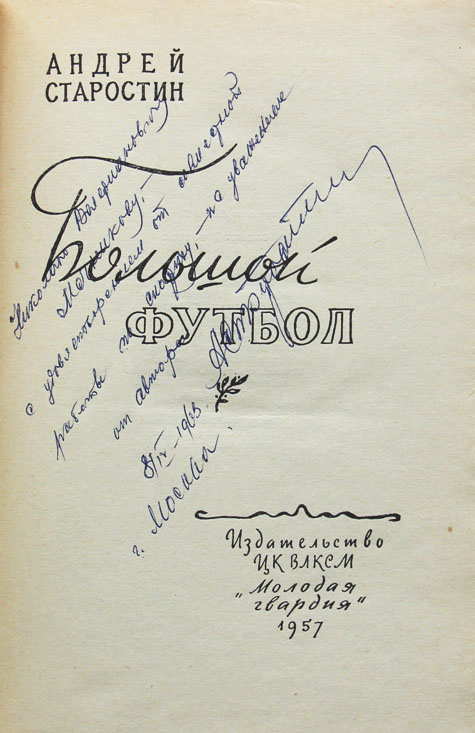 АНДРЕЙ
СТАРОСТИН
Большой
ФУТБОЛ
Николаю Валериановичу
Мешникову,
с удовлетворением от совместной
работы по спорту, на уважение
от автора
8/IV-1963
г. Москва.
Издательство
ЦК ВЛКСМ
„Молодая
гвардия"
1957